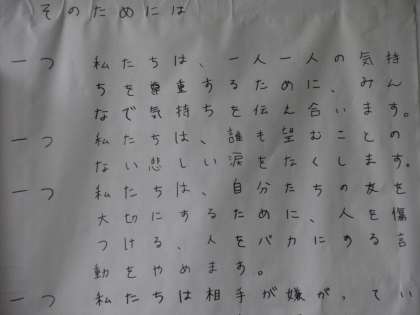 そのためには
一つ 私たちは、一人一人の気持
ちを尊重するために、みん
なで気持ちを伝え合います。
一つ 私たちは、誰も望むことの
ない悲しい涙をなくします。
一つ 私たちは、自分たちの友を
大切にするために、人を傷
つける、人をバカにする言
動をやめます。
一つ 私たちは相手が嫌がってい